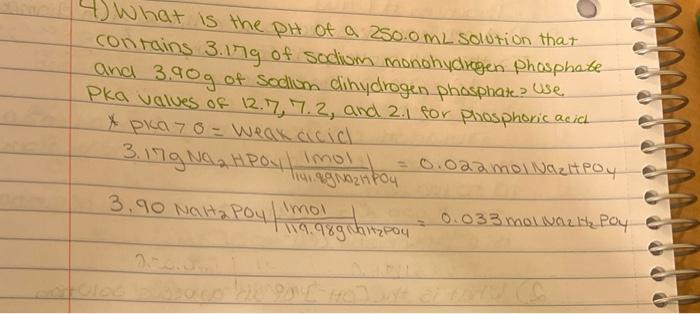 4) What is the pH of a 250.0mL solution that
contains 3.17g of sodium monohydrogen phosphate
and 3.90g of sodium dihydrogen phosphate? Use
Pka values of 12.7, 7.2, and 2.1 for phosphoric acid
* pka > 0 = weak acid
3.17g Na2HPO4 | 1mol = 0.022mol Na2HPO4
141.98g Na2HPO4
3.90 NaH2PO4 | 1mol = 0.033mol Na2H2PO4
119.98g NaH2PO4